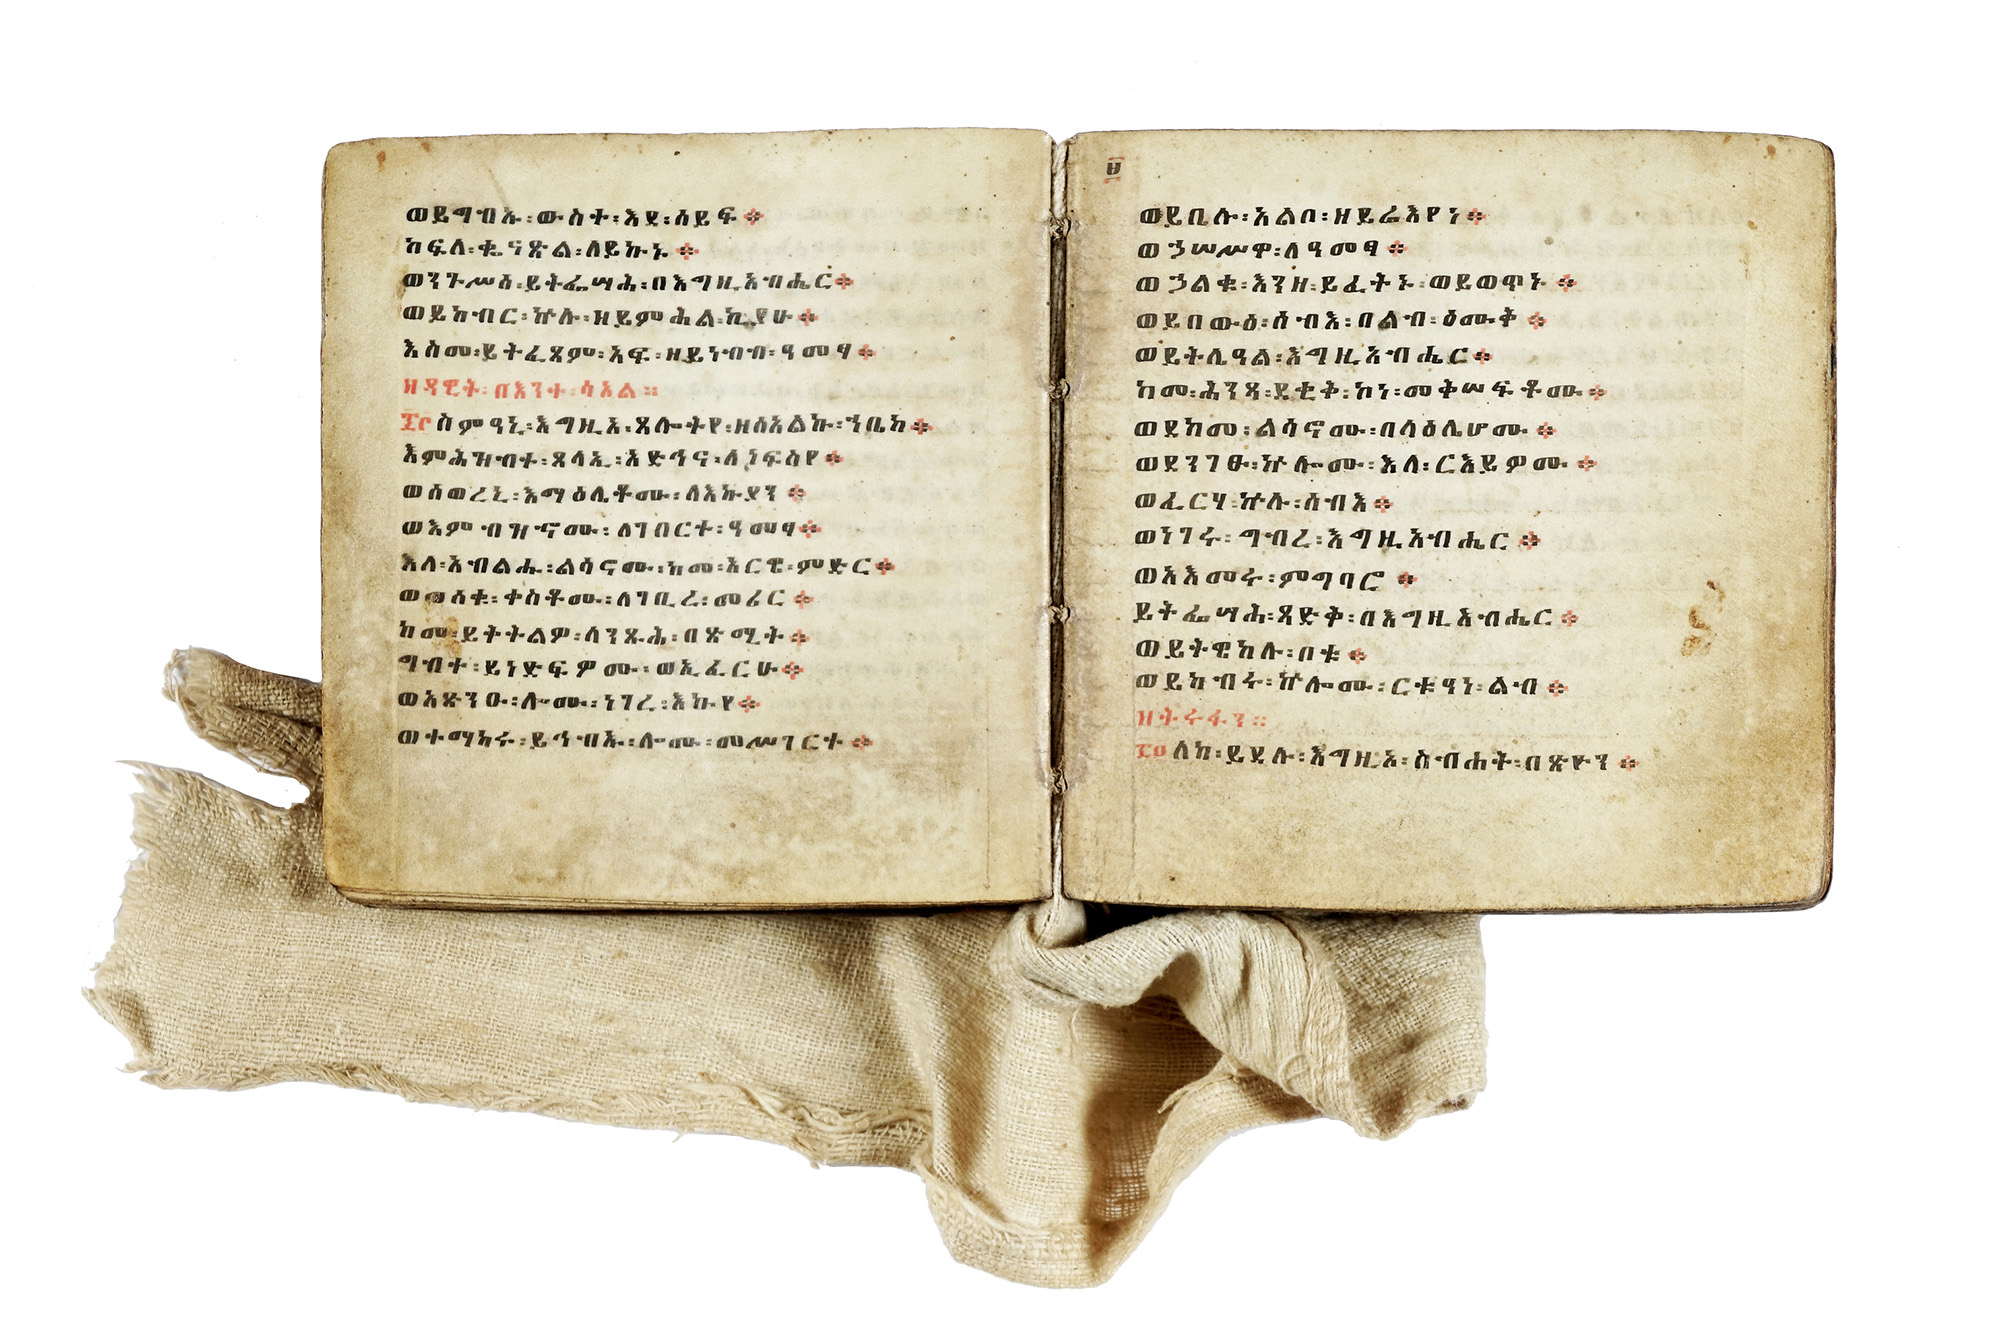 ወይግብኡ፡ውስተ፡እደ፡ሰይፍ።
ክፍለ፡ቈናጽል፡ለይኩኑ።
ወንጉሥሰ፡ይትፌሣሕ፡በእግዚአብሔር።
ወይከብር፡ኵሉ፡ዘይምሕል፡ኪያሁ።
እስመ፡ይትፈጸም፡አፍ፡ዘይነብብ፡ዓመፃ።
ዘዳዊት፡በእንተ፡ሳአል።
፷፫ስምዓኒ፡እግዚአ፡ጸሎትየ፡ዘሰአልኩ፡ኀቤከ።
እምሕዝብተ፡ጸላኢ፡አድኅና፡ለነፍስየ።
ወሰወረኒ፡እማዕሌቶሙ፡ለእኩያን።
ወእምብዝኆሙ፡ለገበርተ፡ዓመፃ።
እለ፡አብልሑ፡ልሳኖሙ፡ከመ፡አርዌ፡ምድር።
ወወሰቁ፡ቀስቶሙ፡ለገቢረ፡መሪር።
ከመ፡ይትትልዎ፡ለንጹሕ፡በጽሚት።
ግብተ፡ይነድፍዎሙ፡ወኢፈርሁ።
ወአጽንዑ፡ሎሙ፡ነገረ፡እኩየ።
ወተማከሩ፡ይኅብኡ፡ሎሙ፡መሥገርተ።
ወይቤሉ፡አልቦ፡ዘይሬእየነ።
ወኃሠሥዋ፡ለዓመፃ።
ወኃልቁ፡እንዘ፡ይፈትኑ፡ወይወጥኑ።
ወይበውዕ፡ሰብእ፡በልብ፡ዕሙቅ።
ወይትሌዓል፡እግዚአብሔር።
ከመ፡ሕንጻ፡ደቂቅ፡ኮነ፡መቅሠፍቶሙ።
ወደከመ፡ልሳኖሙ፡በላዕሌሆሙ።
ወደንገፁ፡ኵሎሙ፡እለ፡ርእይዎሙ።
ወፈርሃ፡ኵሉ፡ሰብእ።
ወነገሩ፡ግብረ፡እግዚአብሔር።
ወአእመሩ፡ምግባሮ።
ይትፌሣሕ፡ጻድቅ፡በእግዚአብሔር።
ወይትዌከል፡ቦቱ።
ወይከብሩ፡ኵሎሙ፡ርቱዓነ፡ልብ።
ዘትሩፋን።
፷፬ለከ፡ይደሉ፡እግዚአ፡ስብሐት፡በጽዮን።